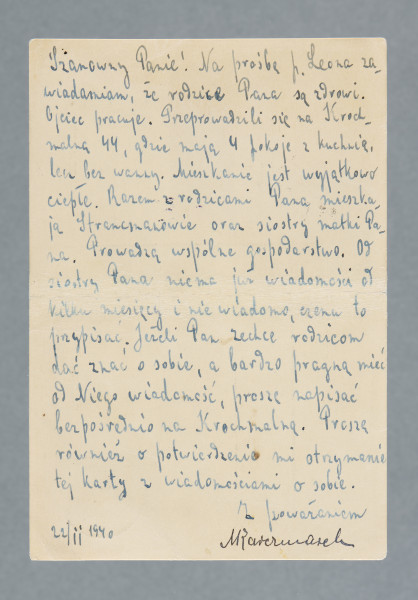 Szanowny Panie! Na prośbę p. Leona za-
wiadamiam, że rodzice Pana są zdrowi.
Ojciec pracuje. Przeprowadzili się na Kroch-
malną 44, gdzie mają 4 pokoje z kuchnią,
lecz bez wanny. Mieszkanie jest wyjątkowo
ciepłe. Razem z rodzicami Pana mieszka-
ją oraz siostry matki Pa-
na. Prowadzą wspólne gospodarstwo. Od
siostry Pana nie ma już wiadomości od
kilku miesięcy i nie wiadomo, czemu to
przypisać. Jeżeli Pan zechce rodzicom
dać znać o sobie, a bardzo pragną mieć
od Niego wiadomość, proszę napisać
bezpośrednio na Krochmalną. Proszę
również o potwierdzenie mi otrzymanie
tej karty z wiadomościami o sobie.
Z poważaniem
22/II 1940